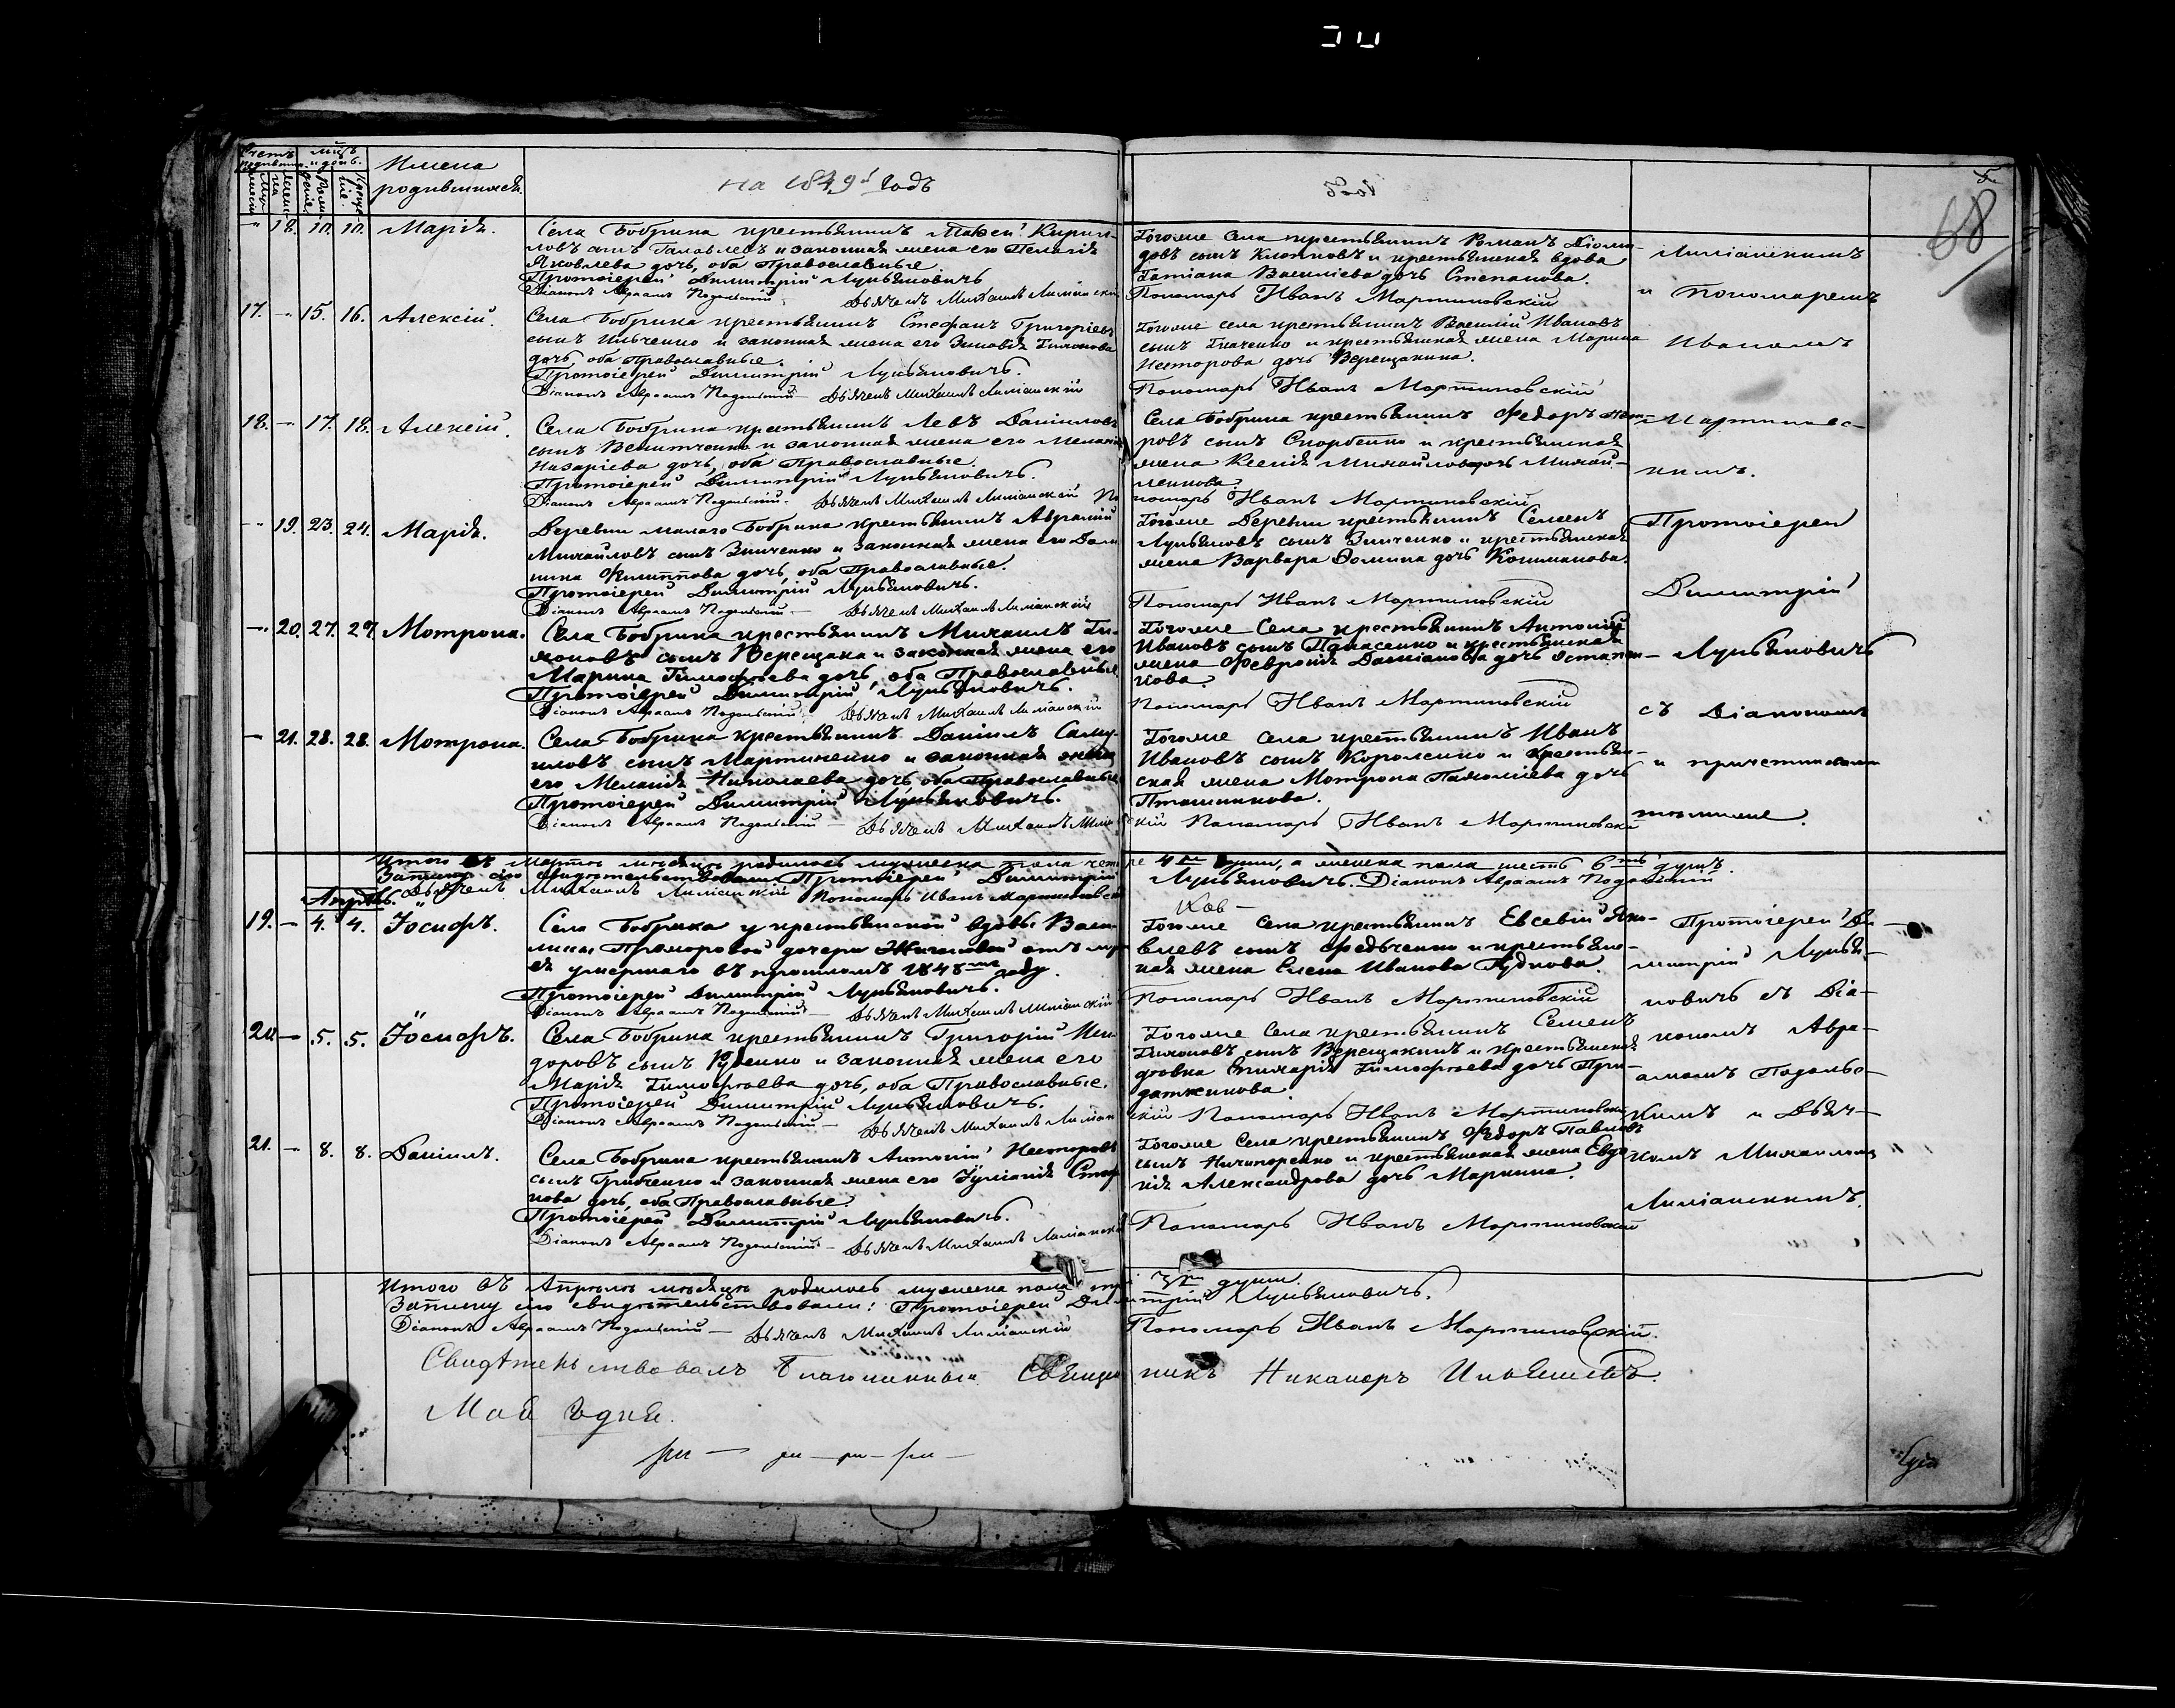 Счетъ родившихся
Мужеска
Женска
Мѣсяцъ и день
Рожденіе
Крещеніе
Имена
родившихся.
на 1849й Годъ
68
18. 10. 10. Марія.
Села Бобрика крестьянинъ Моѵсей Кирил-
ловъ сынъ и законная жена его Пелагія
Яковлева дочь, оба Православные
Протоіерей Димитрій Лукьяновичъ
Діаконъ Авраамъ Подольскій Дьячекъ Михаилъ Лиманскій
Тогоже села крестьянинъ Романъ
довъ сынъ и крестьянская вдова
Татіана Василіева дочь Степанова.
Пономарь Иванъ Мартиновскій
17. — 15. 16. Алексій.
Села Бобрика крестьянинъ Стефанъ Григоріевъ
сынъ Ильченко и законная жена его Зиновія Тихонова
дочь, оба Православные.
Протоіерей Димитрій Лукьяновичъ.
Діаконъ Авраамъ Подольскій — Дьячекъ Михаилъ Лиманскій
Тогоже села крестьянинъ Василій Ивановъ
сынъ Ткаченко и крестьянская жена Марина
Несторова дочь Верещакина.
Пономарь Иванъ Мартиновскій
18. — 17. 18. Алексій.
Села Бобрика крестьянинъ Левъ Даниловъ
сынъ и законная жена его Меланія
Назаріева дочь, оба Православные.
Протоіерей Димитрій Лукьяновичъ.
Діаконъ Авраамъ Подольскій. Дьячекъ Михаилъ Лиманскій По-
Села Бобрика крестьянинъ Федоръ
ровъ сынъ Скорбенко и крестьянская
жена Ксенія Михайлова дочь Михай-
ленкова.
номарь Иванъ Мартиновскій
— 19. 23. 24. Марія.
Деревни малаго Бобрика крестьянинъ Аврамій
Михайловъ сынъ Зинченко и законная жена его Дом-
ника Филиппова дочь, оба Православные.
Протоіерей Димитрій Лукьяновичъ.
Діаконъ Авраамъ Подольскій — Дьячекъ Михаилъ Лиманскій
Тогоже Деревни крестьянинъ Семенъ
Лукьяновъ сынъ Зинченко и крестьянская
жена Варвара Фомина дочь Кошманова.
Пономарь Иванъ Мартиновскій
— 20. 27. 27. Мотрона.
Села Бобрика крестьянинъ Михаилъ Ти-
хоновъ сынъ Верещака и законная жена его
Марина Тимофѣева дочь, оба Православные
Протоіерей Димитрій Лукьяновичъ.
Діаконъ Авраамъ Подольскій. Дьячекъ Михаилъ Лиманскій
Тогоже Села крестьянинъ Антоній
Ивановъ сынъ Панасенко и крестьянская
жена Февронія Даміанова дочь Остапен-
кова.
Пономарь Иванъ Мартиновскій
— 21. 28. 28. Мотрона.
Села Бобрика крестьянинъ Даніилъ Саму-
иловъ сынъ Мартиненко и законная жена
его Меланія Николаева дочь, оба Православные
Протоіерей Димитрій Лукьяновичъ.
Діаконъ Авраамъ Подольскій — Дьячекъ Михаилъ Лиманс-
Тогоже села крестьянинъ Иванъ
Ивановъ сынъ Короленко и крестьян-
ская жена Мотрона Пахоміева дочь
Пташникова.
кій Пономарь Иванъ Мартиновскій
Лиманскимъ
и Пономаремъ
Иваномъ
Мартиновс-
кимъ.
Протоіерей
Димитрій
Лукьяновичъ
съ Діакономъ
и причетниками
тѣмиже.
Итого въ Мартѣ мѣсяцѣ родилось мужеска пола четыре 4ре души, а женска пола шесть 6ть душъ.
Запись сію свидѣтельствовали Протоіерей Димитрій Лукьяновичъ. Діаконъ Авраамъ Подольскій
Дьячекъ Михаилъ Лиманскій Пономарь Иванъ Мартиновскій
Апрѣль.
19. — 4. 4. Іосифъ.
Села Бобрика у крестьянской вдовы Васи-
лисы Прохоровой дочери отъ мужа
ея умершаго въ прошломъ 1848мъ году.
Протоіерей Димитрій Лукьяновичъ.
Діаконъ Авраамъ Подольскій — Дьячекъ Михаилъ Лиманскій
Тогоже Села крестьянинъ Евсевій Яко-
влевъ сынъ Федченко и крестьянс-
кая жена Елена Иванова Рудкова.
Пономарь Иванъ Мартиновскій
20. — 5. 5. Іосифъ.
Села Бобрика крестьянинъ Григорій Иси-
доровъ сынъ Руденко и законная жена его
Марія Тимофѣева дочь, оба Православные.
Протоіерей Димитрій Лукьяновичъ.
Діаконъ Авраамъ Подольскій — Дьячекъ Михаилъ Лиманс-
Тогоже Села крестьянинъ Семенъ
Тихоновъ сынъ Верещакинъ и крестьянская
дѣвка Тимофѣева дочь При-
даткикова.
кій Пономарь Иванъ Мартиновскій
21. — 8. 8. Даніилъ.
Села Бобрика крестьянинъ Антоній Несторовъ
сынъ Гриценко и законная жена его Іуліанія Стефа-
нова дочь, оба Православные
Протоіерей Димитрій Лукьяновичъ.
Діаконъ Авраамъ Подольскій — Дьячекъ Михаилъ Лиманскій
Тогоже Села крестьянинъ Федоръ Павловъ
сынъ Ничипоренко и крестьянская жена Евдо-
кія Александрова дочь Маркина.
Пономарь Иванъ Мартиновскій
Протоіерей Ди-
митрій Лукья-
новичъ съ Діа-
кономъ Авра-
амомъ Подольс-
кимъ и Дьяч-
комъ Михаиломъ
Лиманскимъ.
Итого въ Апрѣлѣ мѣсяцѣ родилось мужеска пола три 3ри души.
Запись сію свидѣтельствовали: Протоіерей Димитрій Лукьяновичъ.
Діаконъ Авраамъ Подольскій — Дьячекъ Михаилъ Лиманскій Пономарь Иванъ Мартиновскій.
Свидѣтельствовалъ Благочинный Священникъ Никаноръ Ильяшевъ.
Мая дня.